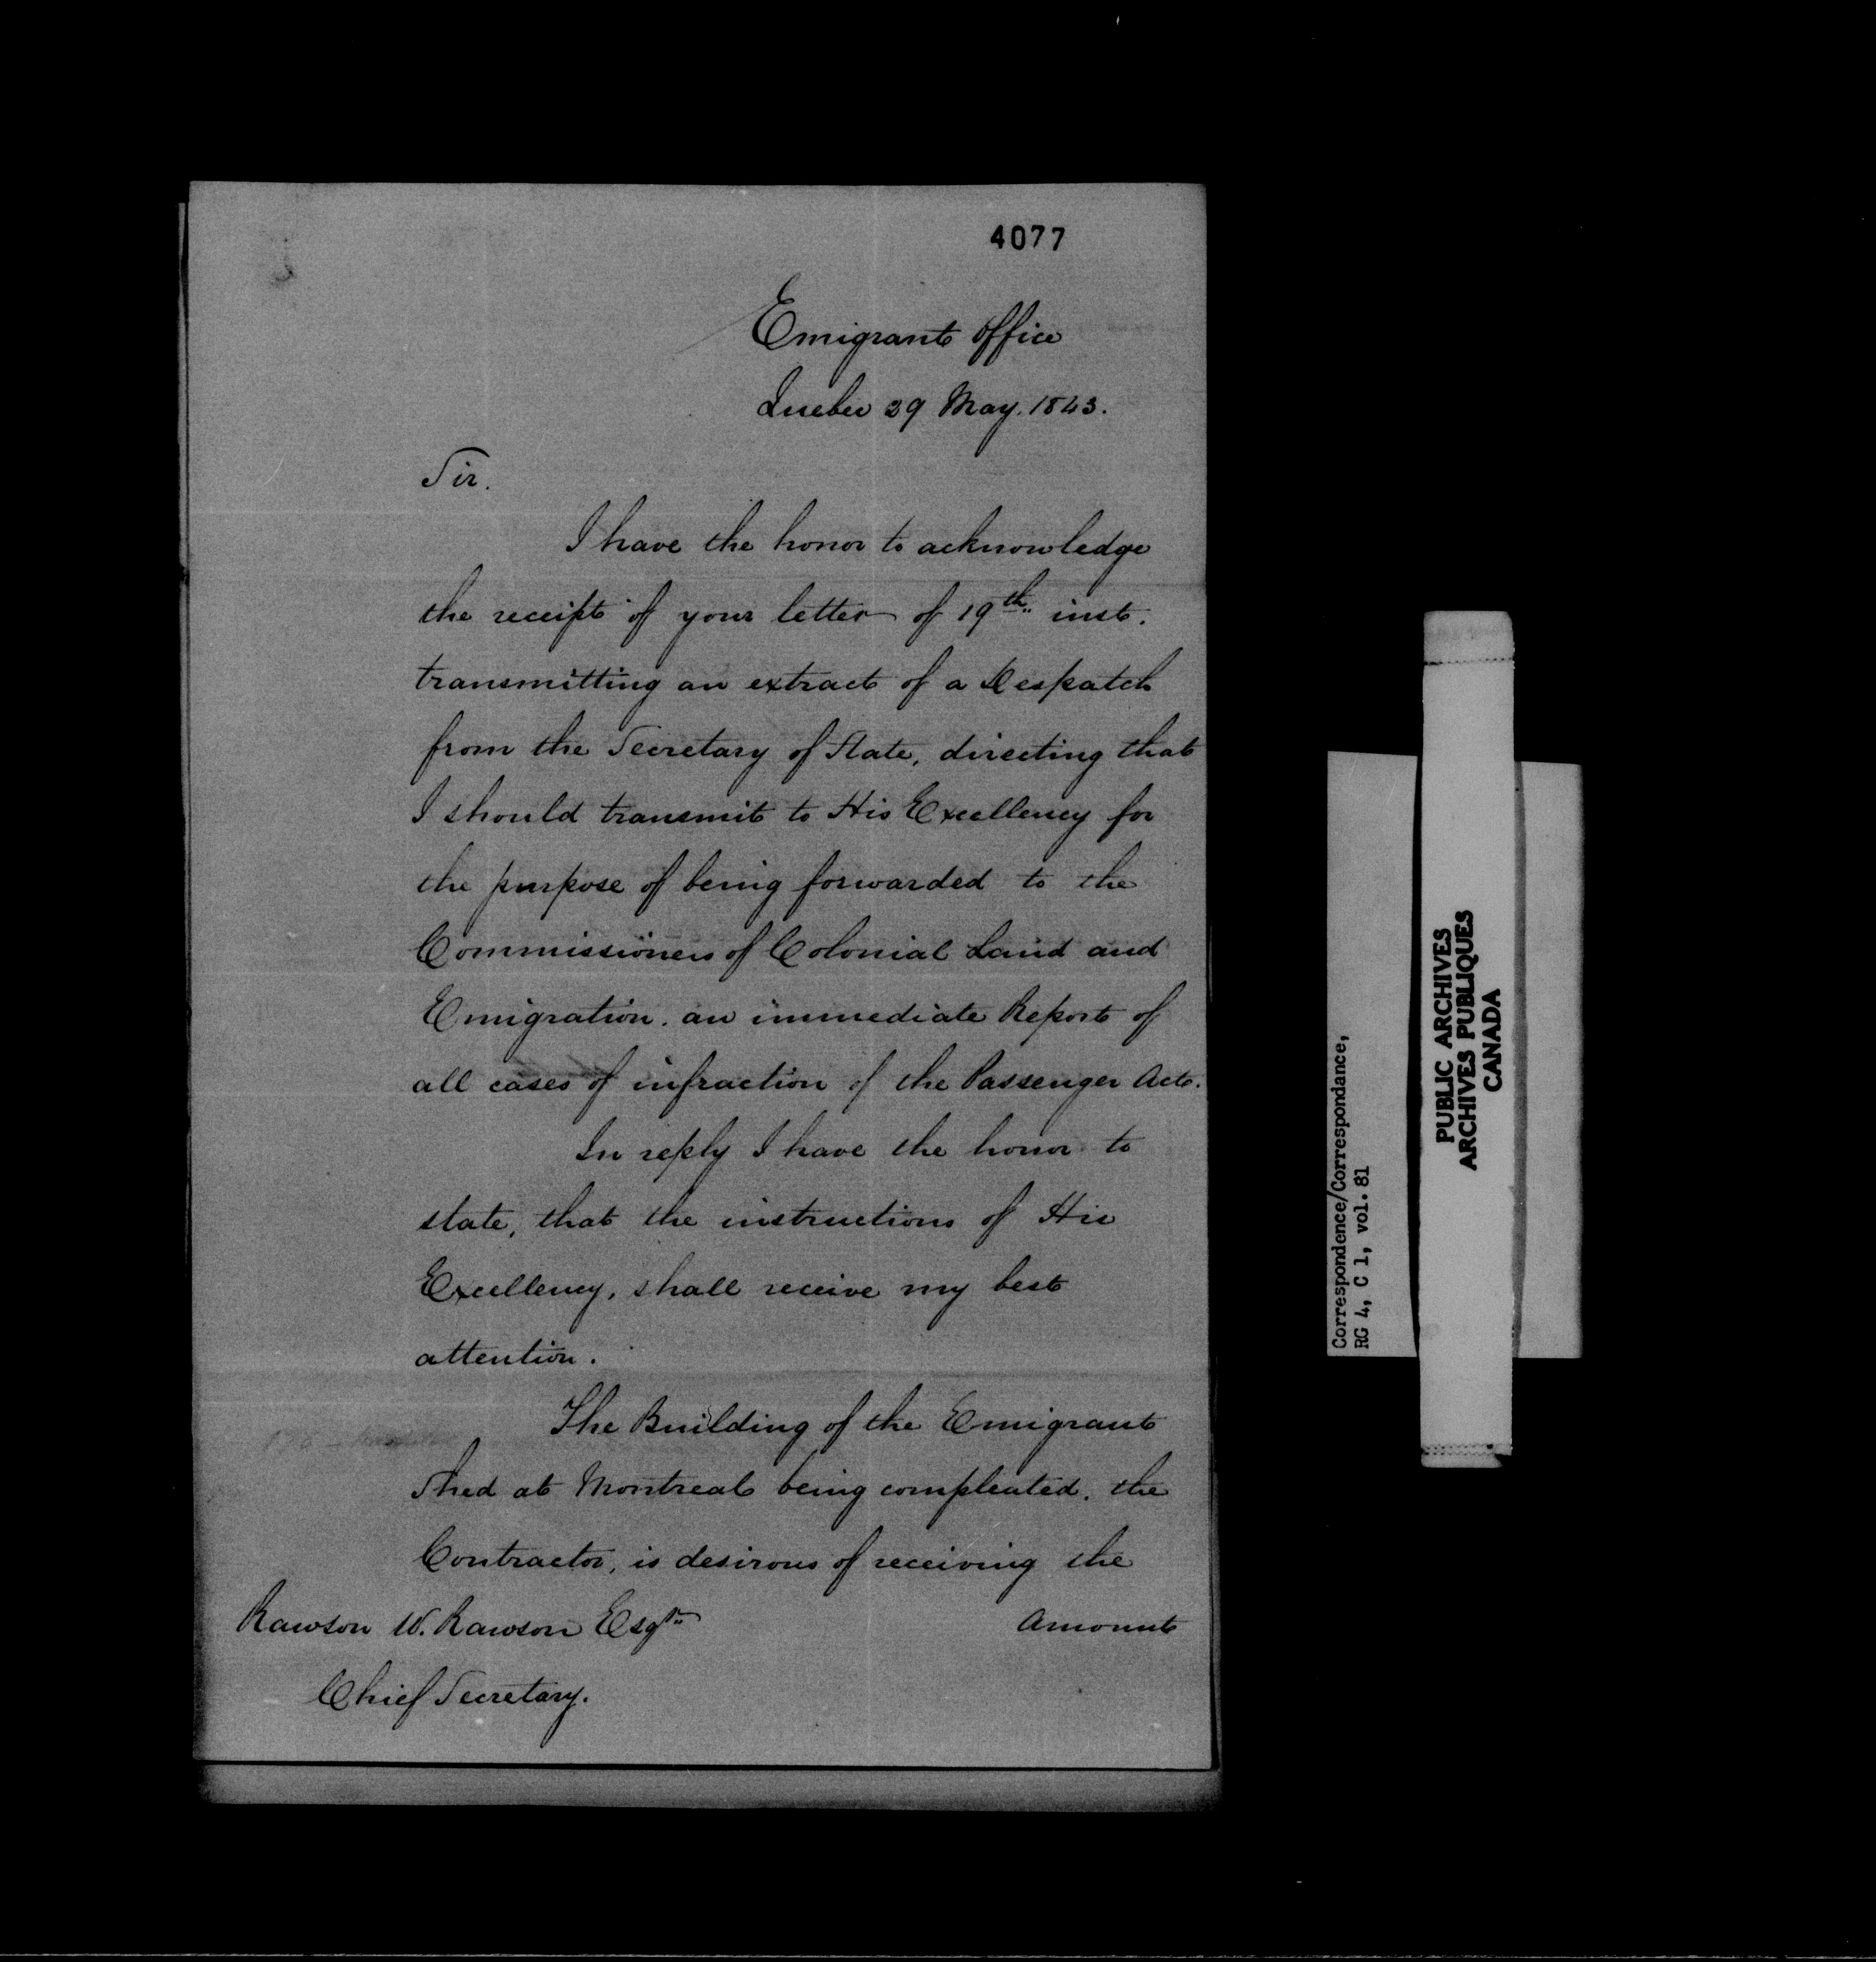 4077
Emigrant Office
Quebec 29 May. 1843.
Sir.
I have the honor to acknowledge
the receipt of your letter of 19th inst.
transmitting an extract of a Despatch
from the Secretary of State, directing that
I should transmit to His Excellency for
the purpose of being forwarded to the
Commissioners of Colonial Land and
Emigration. an immediate Report of
all cases of infraction of the Passenger Act.
In reply I have the honor to
state, that the instructions of His
Excellency, shall receive my best
attention.
The Building of the Emigrant
Shed at Montreal being compleated. the
Contractor, is desirous of receiving the
Amount
Rawson W. Rawson Esqr
Chief Secretary.
Correspondence/Correspondance,
RG 4, C 1, vol. 81
PUBLIC ARCHIVES
ARCHIVES PUBLIQUES
CANADA